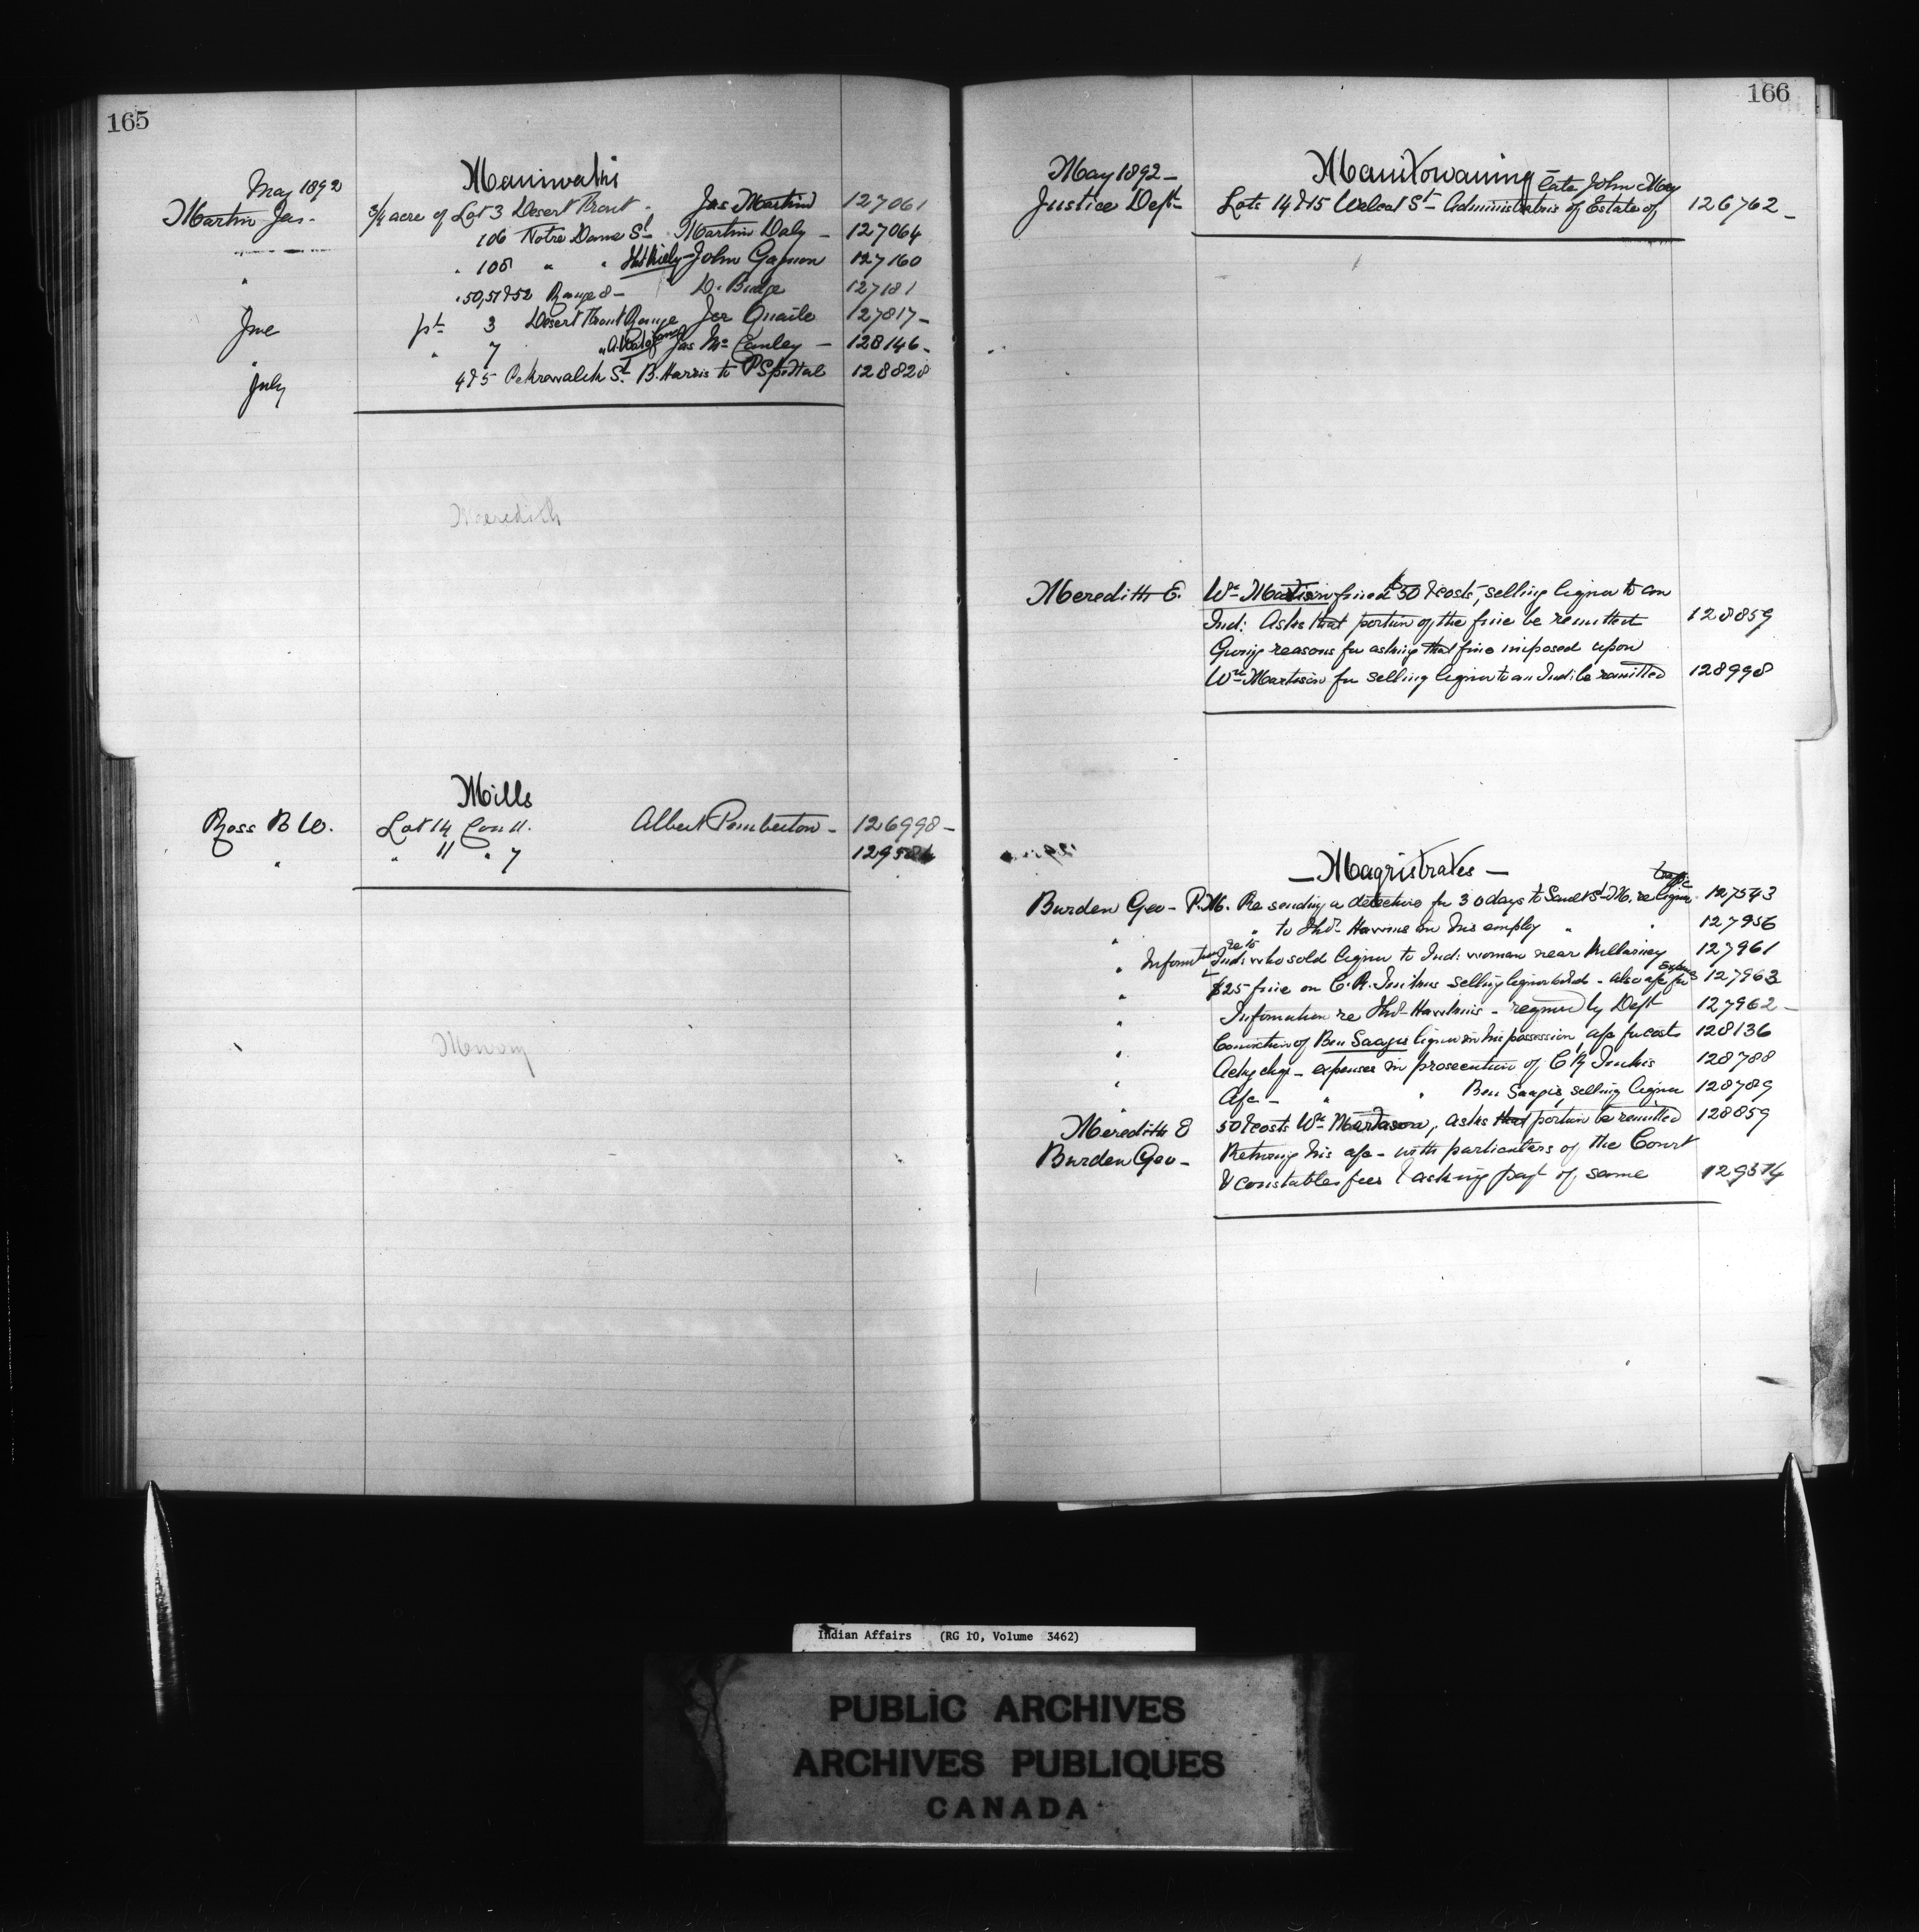 165
May 1892
Maniwaki
Martin Jas. - 3/4 acre of Lot 3 Desert Front - Jas Martin 127061
" 106 Notre Dame St Martin Daly - 127064
" " 106 " " John Gagnon 127160
" 50, 51 & 52 Range 8 - D. Budge 127181
June pt 3 Desert Front Range Jer Quaile 127817 -
" " 7 " Jas Mc Cauley - 128146 -
July 4 & 5 St. B. Harris to P 128828
Meredith
Mills
Ross B W. Lot 14 Con 11. Albert Pemberton - 126998 -
" " 11 " 7
166
May 1892 -
Manitowaning
late John May
Justice Dept Lots 14 & 15 St - Administratrix of Estate of 126762 -
Meredith E. Wm Martison fined $50 & costs, selling liquor to an
Ind: Asks that portion of the fine be remitted 128859
Giving reasons for asking that fine imposed upon
Wm Martison for selling liquor to an Ind: be remitted 128998
- Magistrates -
traffic
Burden Geo - P.M. Re sending a detective for 30 days to Sault St M. re liquor 127543
" " to Thos. in his employ " " 127956
" Information re to Ind: who sold liquor to Ind: woman near Killarney 127961
" $25 fine on C. R. Jenkins selling liquor to Ind - also a/c for expenses 127963
" Information re Thos - required by Dept 127962 -
" Conviction of Ben Saagis liquor in his possession, a/c for costs 128136
" Ackg chq - expenses in prosecution of C R Jenkins 128788
" A/c - " " Ben Saagis, selling liquor 128789
Meredith E 50 & costs Wm Martason, asks that portion be remitted 128859
Burden Geo - Returning his a/c - with particulars of the Court
& constables fees & asking payt of same 129374
Indian Affairs (RG 10, Volume 3462)
PUBLIC ARCHIVES
ARCHIVES PUBLIQUES
CANADA